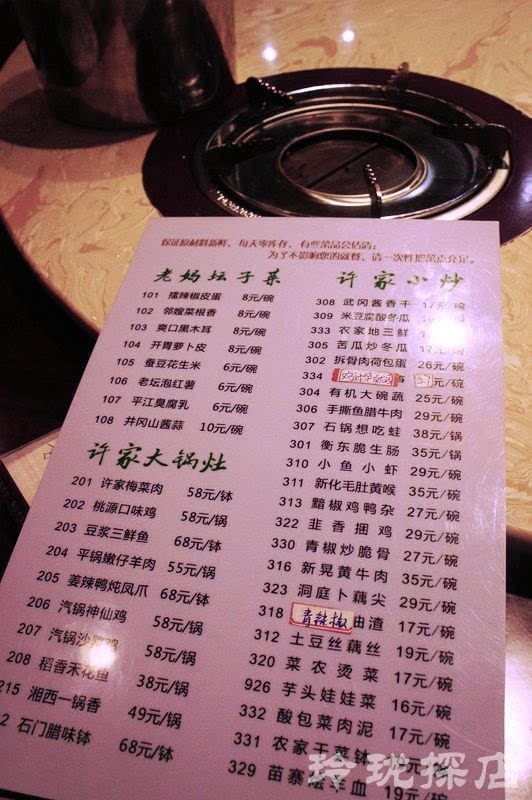 保证原材料新鲜，每天零库存，有些菜品会估清；
为了不影响您的就餐，请一次性把菜点充足。
老妈坛子菜
101 擂辣椒皮蛋 8元/碗
102 邻嫂菜根香 8元/碗
103 爽口黑木耳 8元/碗
104 开胃萝卜皮 8元/碗
105 蚕豆花生米 6元/碗
106 老坛泡红薯 6元/碗
107 平江臭腐乳 6元/碗
108 井冈山酱蒜 10元/碗
许家大锅灶
201 许家梅菜肉 58元/钵
202 桃源口味鸡 58元/锅
203 豆浆三鲜鱼 68元/钵
204 平锅嫩仔羊肉 55元/锅
205 姜辣鸭炖凤爪 68元/钵
206 汽锅神仙鸡 58元/锅
207 汽锅沙 鸡 58元/锅
208 稻香禾花鱼 38元/锅
215 湘西一锅香 49元/锅
2 石门腊味钵 68元/钵
许家小炒
308 武冈酱香干 17元/碗
309 米豆腐酸冬瓜 元/碗
333 农家地三鲜 元/碗
305 苦瓜炒冬瓜 17元/碗
302 拆骨肉荷包蛋 26元/碗
334 元/碗
304 有机大碗蔬 25元/碗
306 手撕鱼腊牛肉 29元/碗
307 石锅想吃蛙 38元/锅
301 衡东脆生肠 35元/锅
310 小鱼小虾 29元/碗
311 新化毛肚黄喉 35元/碗
313 黯椒鸡鸭杂 27元/碗
322 韭香捆鸡 29元/碗
330 青椒炒脆骨 27元/碗
316 新晃黄牛肉 35元/碗
323 洞庭卜藕尖 29元/碗
318 青辣椒油渣 17元/碗
312 土豆丝藕丝 19元/碗
320 菜农烫菜 17元/碗
926 芋头娃娃菜 16元/碗
332 酸包菜肉泥 17元/碗
331 农家干菜钵 元/碗
329 苗寨烩羊血 19元/碗
玲珑探店